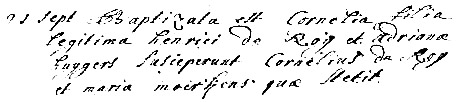 21 sept Baptizata est Cornelia filia
legitima henrici de Roy et Adrianæ
huygers susceperunt Cornelius de Roy
et maria moirkens quæ stetit